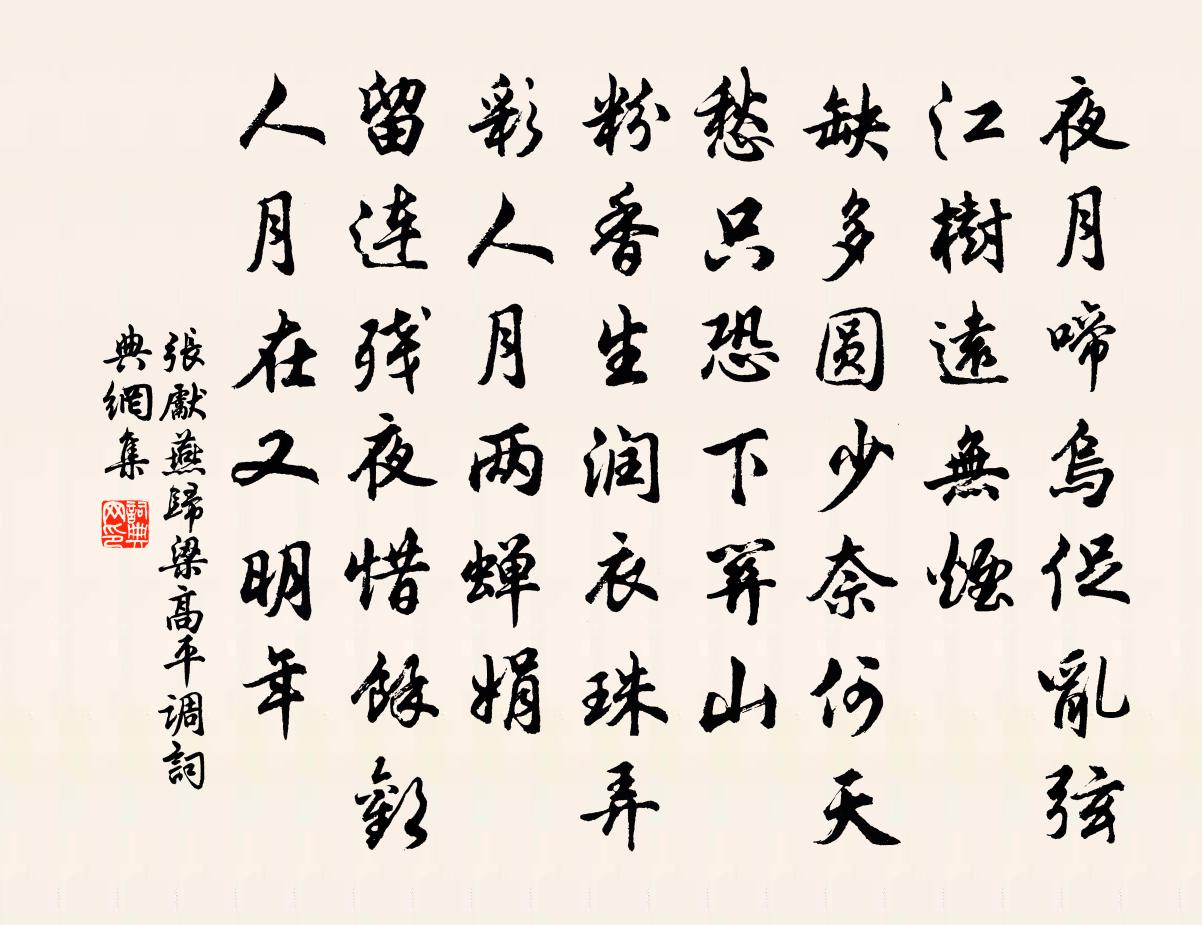 夜月啼烏促亂弦
江樹遠無煙
缺多圆少奈何天
愁只恐下関山
粉香生润衣珠弄
彩人月两蝉娟
留连残夜惜餘歡
人月在又明年
張獻燕歸梁高平调詞
典網集
詞典网印